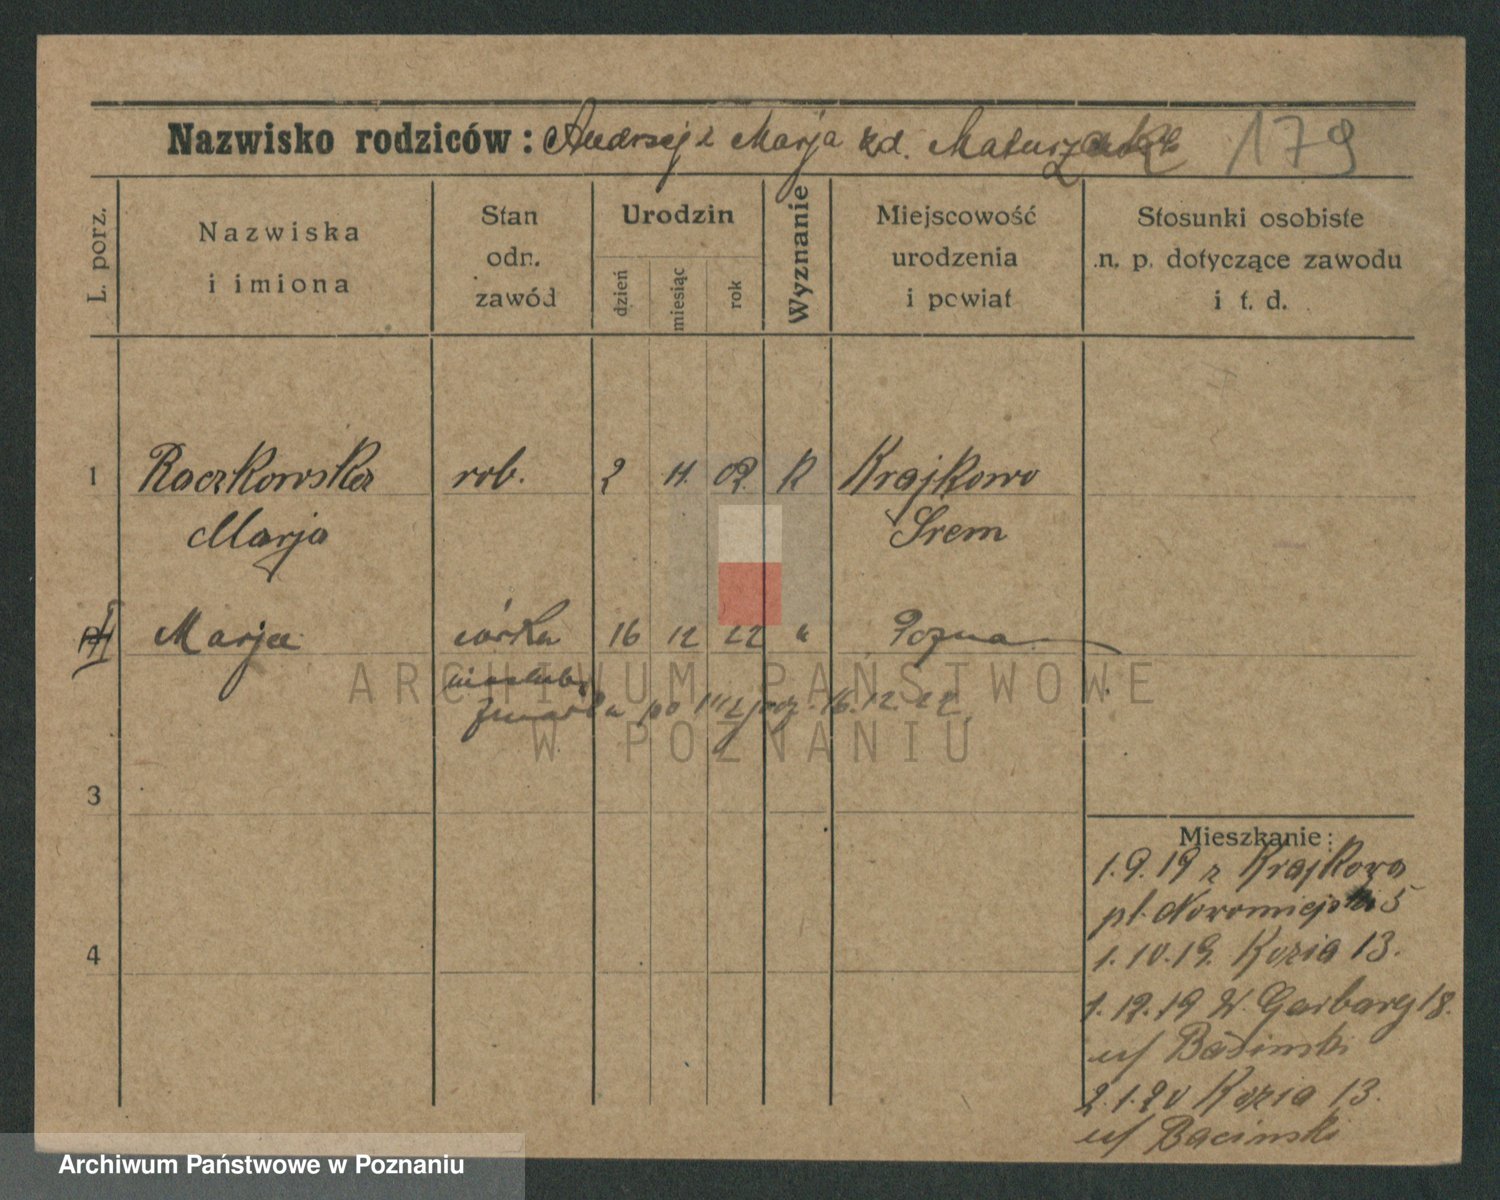 Nazwisko rodziców: Andrzej i Marja zd. 179
L. porz.
Nazwiska i imiona
Stan odn. zawód
Urodzin
dzień
miesiąc
rok
Wyznanie
Miejscowość urodzenia i powiat
Stosunki osobiste n. p. dotyczące zawodu i t. d.
1 Raczkowska rob. 2 11. 02. R Krajkowo
Marja Śrem
Marja córka 16 12 22 " Pozna
nieślub.
zmarła po 16.12.22
3
4
Mieszkanie:
1.9.19 z Krajkowa
pl. Nowomiejski 5
1.10.19. Kozia 13.
1.12.19 W. Garbary 18.
u/ Baciński
2.1.20 Kozia 13.
u/ Baciński
ARCHIWUM PAŃSTWOWE
W POZNANIU
Archiwum Państwowe w Poznaniu